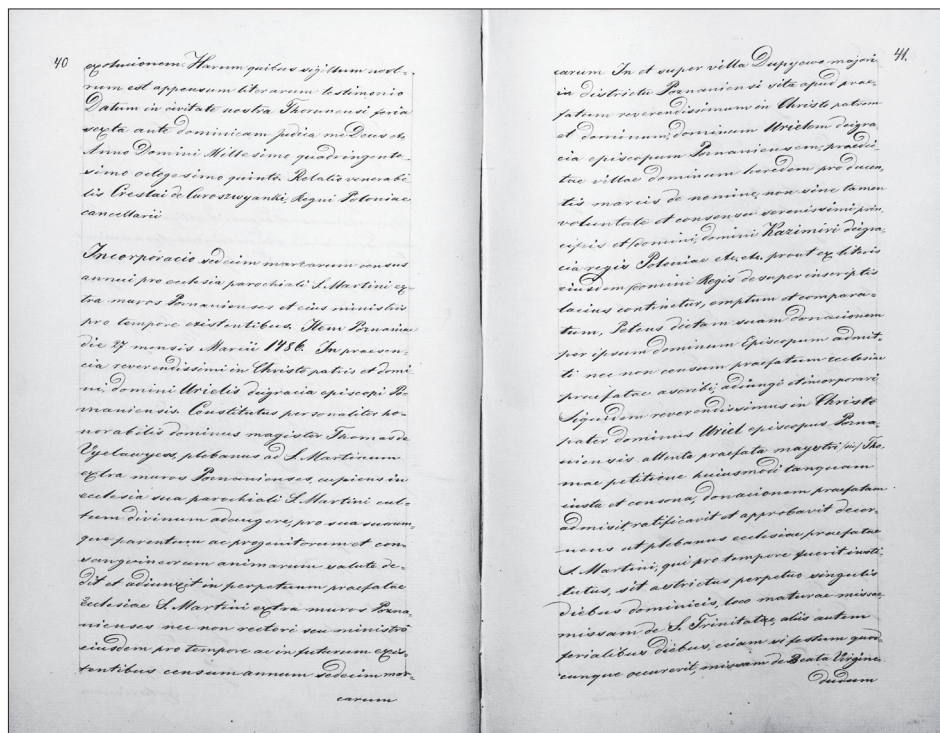 40
exolucionem Harum quibus sigillum nost-
rum est appensum literarum testimonio
Datum in civitate nostra Thorunensi feria
sexta ante dominicam Judica me Deus etc.
Anno Domini Millesimo quadringente-
simo octogesimo quinto. Relatio venerabi
lis Creslai de Curoszwyanki, Regni Poloniae
cancellarii
Incorporacio sedecim marcarum census
annui pro ecclesia parochiali S. Martini ex-
tra muros Poznanienses et eius ministris
pro tempore existentibus. Item Poznaniae
die 27 mensis Marcii 1486. In praesen-
cia reverendissimi in Christo patris et domi-
ni, domini Urielis deigracia episcopi Po-
znaniensis. Constitutus personaliter ho-
norabilis dominus magister Thomas de
Vyelawyess, plebanus ad S. Martinum
extra muros Poznanienses, cupiens in
ecclesia sua parochiali S. Martini cul-
tum divinum adaugere, pro sua suorum-
que parentum ac progenitorum et con-
sangvineorum animarum salute de-
dit et adiunxit in perpetuum praefatae
Ecclesiae S. Martini extra muros Pozna-
nienses nec non rectori seu ministro
eiusdem pro tempore ac in futurum exis-
tentibus censum annum sedecim mar-
carum
41.
carum In et super villa Dupyewo majori
in districtu Poznaniensi sita apud prae-
fatum reverendissimum in Christo patrem
et dominum, dominum Urielem deigra
cia episcopum Poznaniensem, praedic-
tae villae dominum heredem pro ducen-
tis marcis de nomine, non sine tamen
voluntate et consensu serenissimi prin-
cipis et domini, domini Kazimiri deigra-
cia regis Poloniae etc. etc. prout ex literis
eiusdem Domini Regis desuper inscriptis
lacius continetur, emptum et compara-
tum, Petens dictam suam donacionem
per ipsum dominum Episcopum admit-
ti nec non censum praefatum ecclesiae
praefatae ascribi, adiungi et incorporari
Siquidem reverendissimus in Christo
pater dominus Uriel episcopus Pozna-
niensis attenta praefata magystri /sic/ Tho-
mae petitione huiusmodi tanquam
iusta et consona, donacionem praefatam
admisit, ratificavit et approbavit decer-
nens ut plebanus ecclesiae praefatae
S. Martini, qui pro tempore fuerit insti-
tutus, sit astrictus perpetuo singulis
diebus dominicis, loco maturae missae
missam de S. Trinitatze, aliis autem
ferialibus diebus, eciam si festum quod-
cunque occurerit, missam de Beata Virgine
dudum